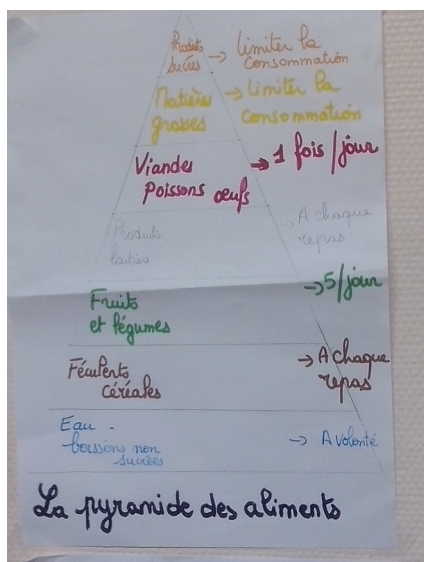 Produits
sucrés → Limiter la
consommation
Matières
grasses → Limiter la
consommation
Viandes
poissons oeufs → 1 fois/jour
Produits
laitiers → A chaque
repas
Fruits
et légumes → 5/jour
Féculents
céréales → A chaque
repas
Eau -
boissons non
sucrées → A volonté
La pyramide des aliments